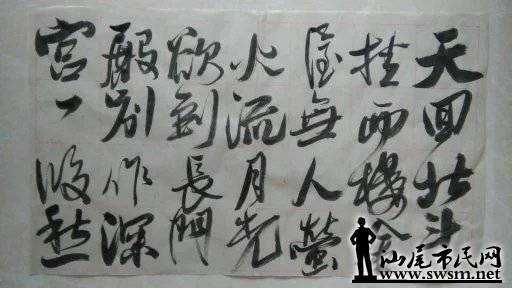 天回北斗
挂西樓金
屋無人螢
火流月光
欲到長門
殿别作深
宫一段愁
汕尾市民网
www.swsm.net